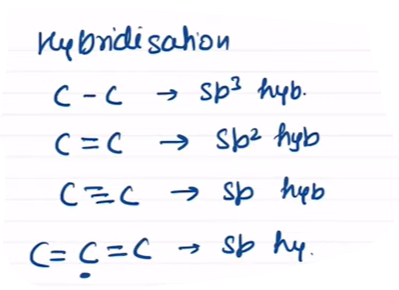 Hybridisation
C - C → sp³ hyb.
C = C → sp² hyb
C ≡ C → sp hyb
C = C = C → sp hy.